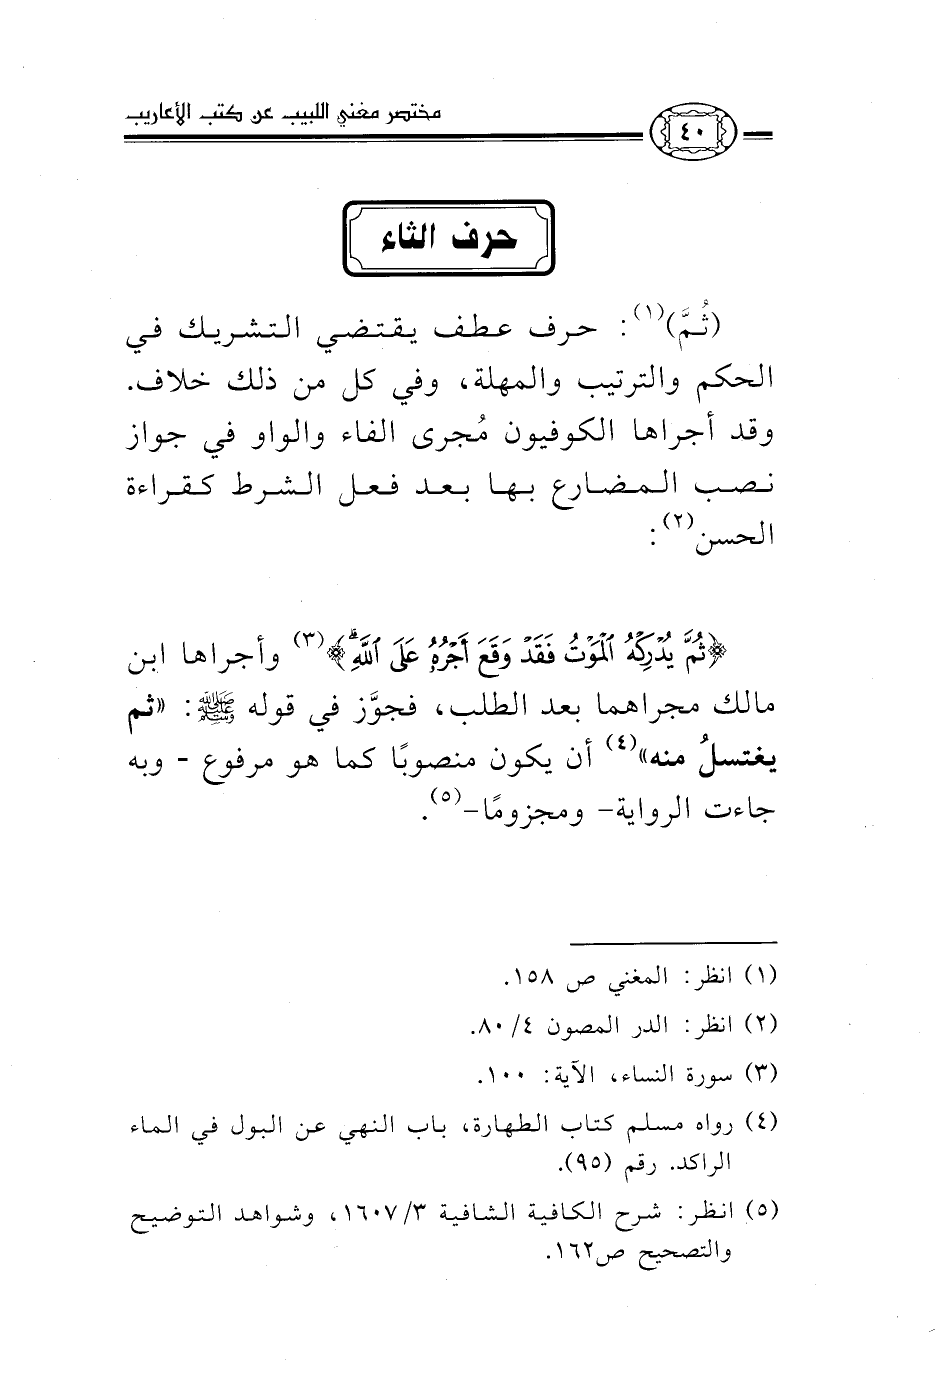 مختصر مغني اللبيب عن كتب الأعاريب
٤٠
حرف الثاء
(ثُمَّ)(١): حرف عطف يقتضي التشريك في
الحكم والترتيب والمهلة، وفي كل من ذلك خلاف.
وقد أجراها الكوفيون مُجرى الفاء والواو في جواز
نصب المضارع بها بعد فعل الشرط كقراءة
الحسن(٢):
﴿ثُمَّ يُدْرِكْهُ ٱلْمَوْتُ فَقَدْ وَقَعَ أَجْرُهُۥ عَلَى ٱللَّهِۗ﴾(٣) وأجراها ابن
مالك مجراهما بعد الطلب، فجوَّز في قوله ﷺ: «ثم
يغتسلُ منه»(٤) أن يكون منصوبًا كما هو مرفوع - وبه
جاءت الرواية- ومجزومًا-(٥).
(١) انظر: المغني ص ١٥٨.
(٢) انظر: الدر المصون ٤/ ٨٠.
(٣) سورة النساء، الآية: ١٠٠.
(٤) رواه مسلم كتاب الطهارة، باب النهي عن البول في الماء
الراكد. رقم (٩٥).
(٥) انظر: شرح الكافية الشافية ٣/ ١٦٠٧، وشواهد التوضيح
والتصحيح ص١٦٢.